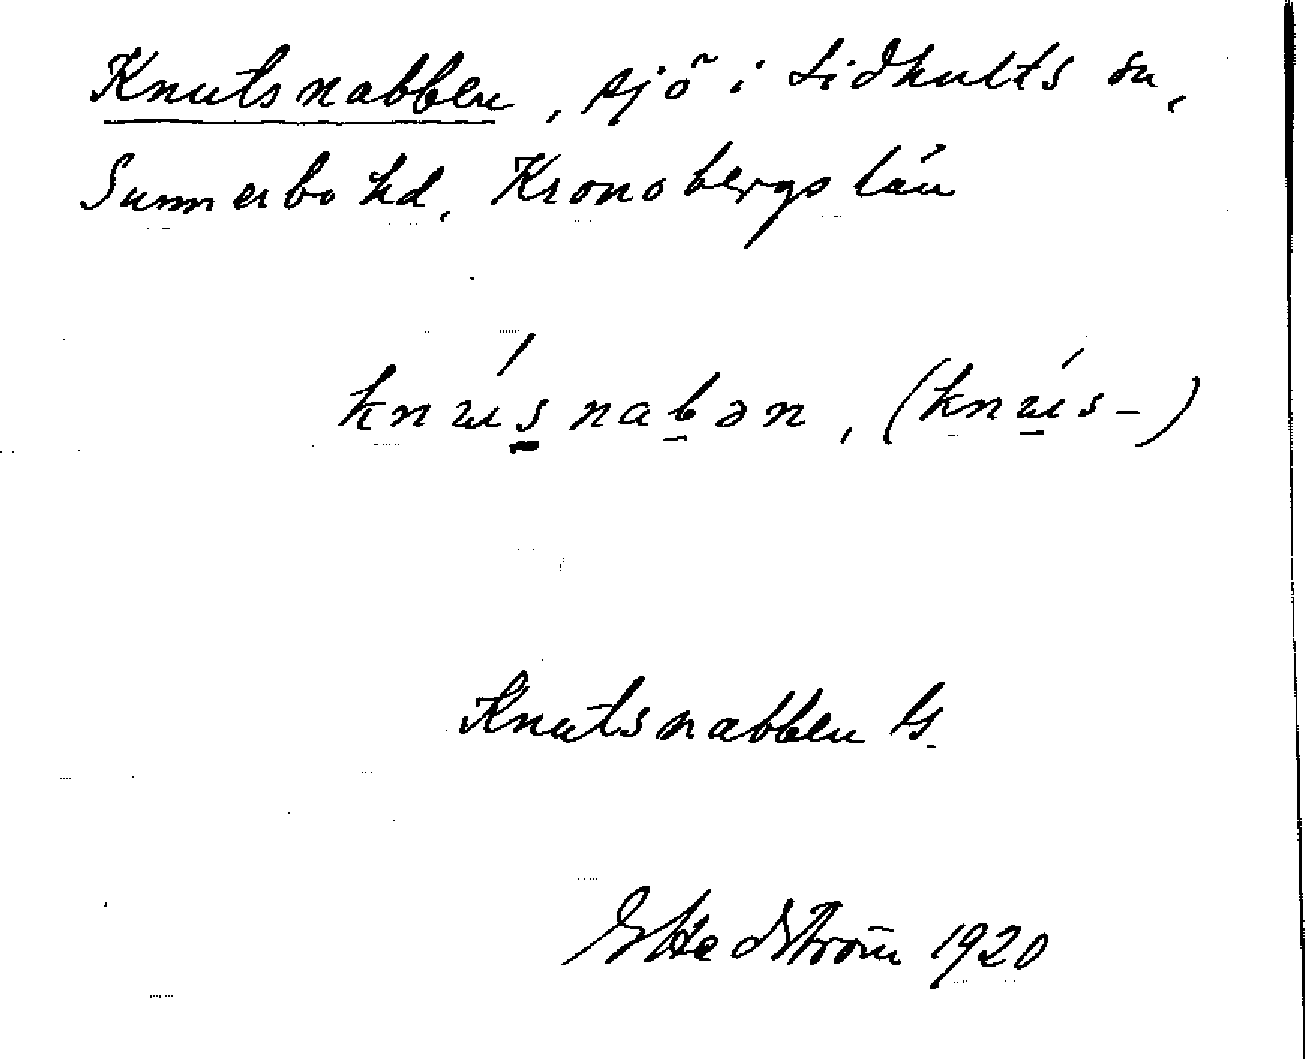 Knutsnabben, sjö i Lidhults sn,
Sunnerbo hd, Kronobergs län
knu̇́snabən, (knú̇s-)
Knutsnabben G.
G Hedström 1920